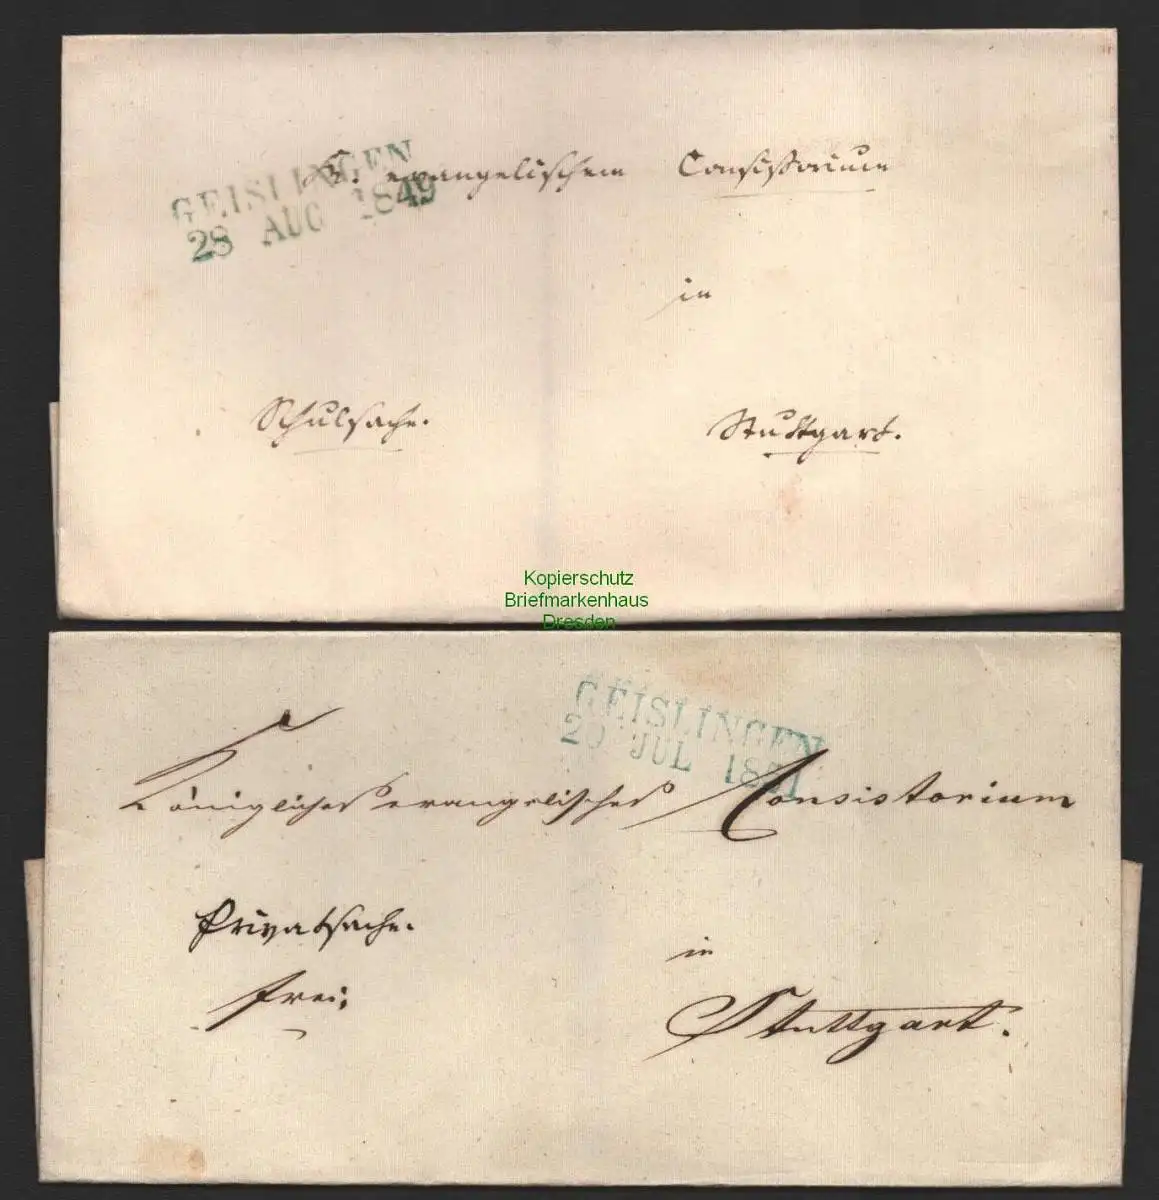 GEISLINGEN
28 AUG 1849
K. evangelischem Consistorium
in
Schulsache.
Stuttgart.
Kopierschutz
Briefmarkenhaus
Dresden
GEISLINGEN
20 JUL 1851
Königliches evangelisches Consistorium
Privatsache.
frei;
in
Stuttgart.